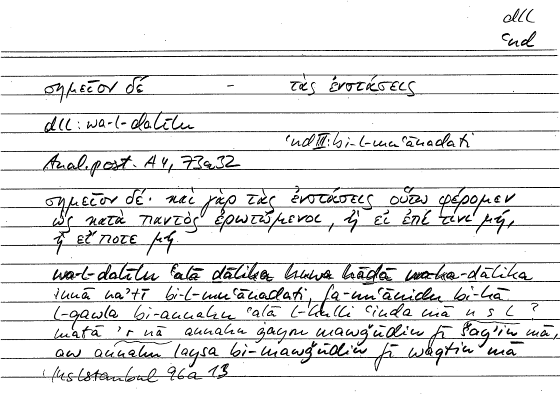 dll
ʿnd
σημεῖον δέ - τὰς ἐνστάσεις
dll: wa-l-dalīlu
ʿnd III: bi-l-muʿānadati
Anal. post. A 4, 73a32
σημεῖον δέ· καὶ γὰρ τὰς ἐνστάσεις οὕτω φέρομεν
ὡς κατὰ παντὸς ἐρωτώμενοι, ἢ εἰ ἐπί τινι μή,
ἢ εἴ ποτε μή.
wa-l-dalīlu ʿalā dālika huwa hādā -dālika
innā naʾtī bi-l-muʿānadati, fa-nuʿānidu bi-hā
l-qawla bi-annahu ʿalā l-kulli ʿinda mā n s l ?
matā annahu ġayru mawǧūdin fī šayʾin mā,
aw annahu laysa bi-mawǧūdin fī waqtin mā
Istanbul 96a 13